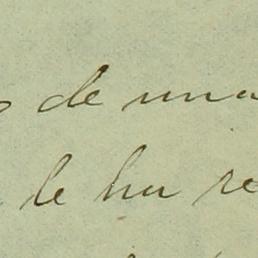 de una
le ha re